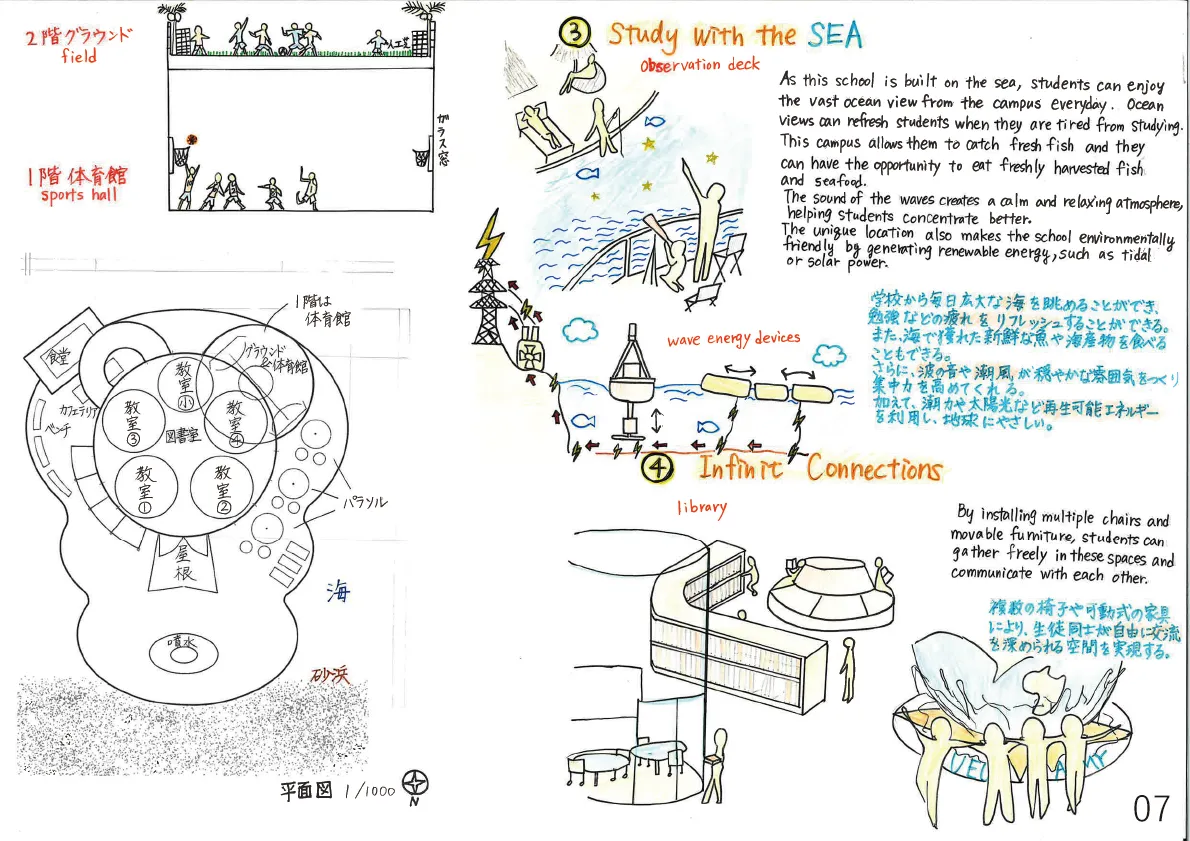 2階グラウンド
field
人工芝
ガラス窓
1階 体育館
sports hall
1階は
体育館
食堂
グラウンド
&体育館
教室小
カフェテリア
教室③
図書室
教室④
ベンチ
教室①
教室②
パラソル
屋根
海
噴水
砂浜
平面図 1/1000
N
③ Study with the SEA
observation deck
As this school is built on the sea, students can enjoy
the vast ocean view from the campus everyday. Ocean
views can refresh students when they are tired from studying.
This campus allows them to catch fresh fish and they
can have the opportunity to eat freshly harvested fish
and seafood.
The sound of the waves creates a calm and relaxing atmosphere,
helping students concentrate better.
The unique location also makes the school environmentally
friendly by generating renewable energy, such as tidal
or solar power.
学校から毎日広大な海を眺めることができ、
勉強などの疲れをリフレッシュすることができる。
また、海で獲れた新鮮な魚や海産物を食べる
こともできる。
さらに、波の音や潮風が穏やかな雰囲気をつくり
集中力を高めてくれる。
加えて、潮力や太陽光など再生可能エネルギー
を利用し、地球にやさしい。
wave energy devices
④ Infinit Connections
library
By installing multiple chairs and
movable furniture, students can
gather freely in these spaces and
communicate with each other.
複数の椅子や可動式の家具
により、生徒同士が自由に交流
を深められる空間を実現する。
07